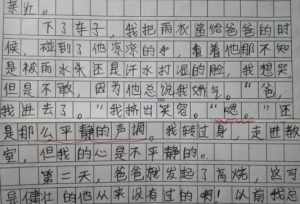 亲近。
下了车子，我把雨衣盖给爸爸的时
候，碰到了他凉凉的手，看着他那不知
是被雨水还是汗水打湿的脸，我想哭
但是不敢，因为他总说我娇气。“爸，
我进去了。”我挤出笑容。“嗯。”还
是那么平静的声调。我转过身，走进教
室，但我的心是不平静的。
第二天，爸爸就发起了高烧，这可
是健壮的他从来没有过的啊！以前我总